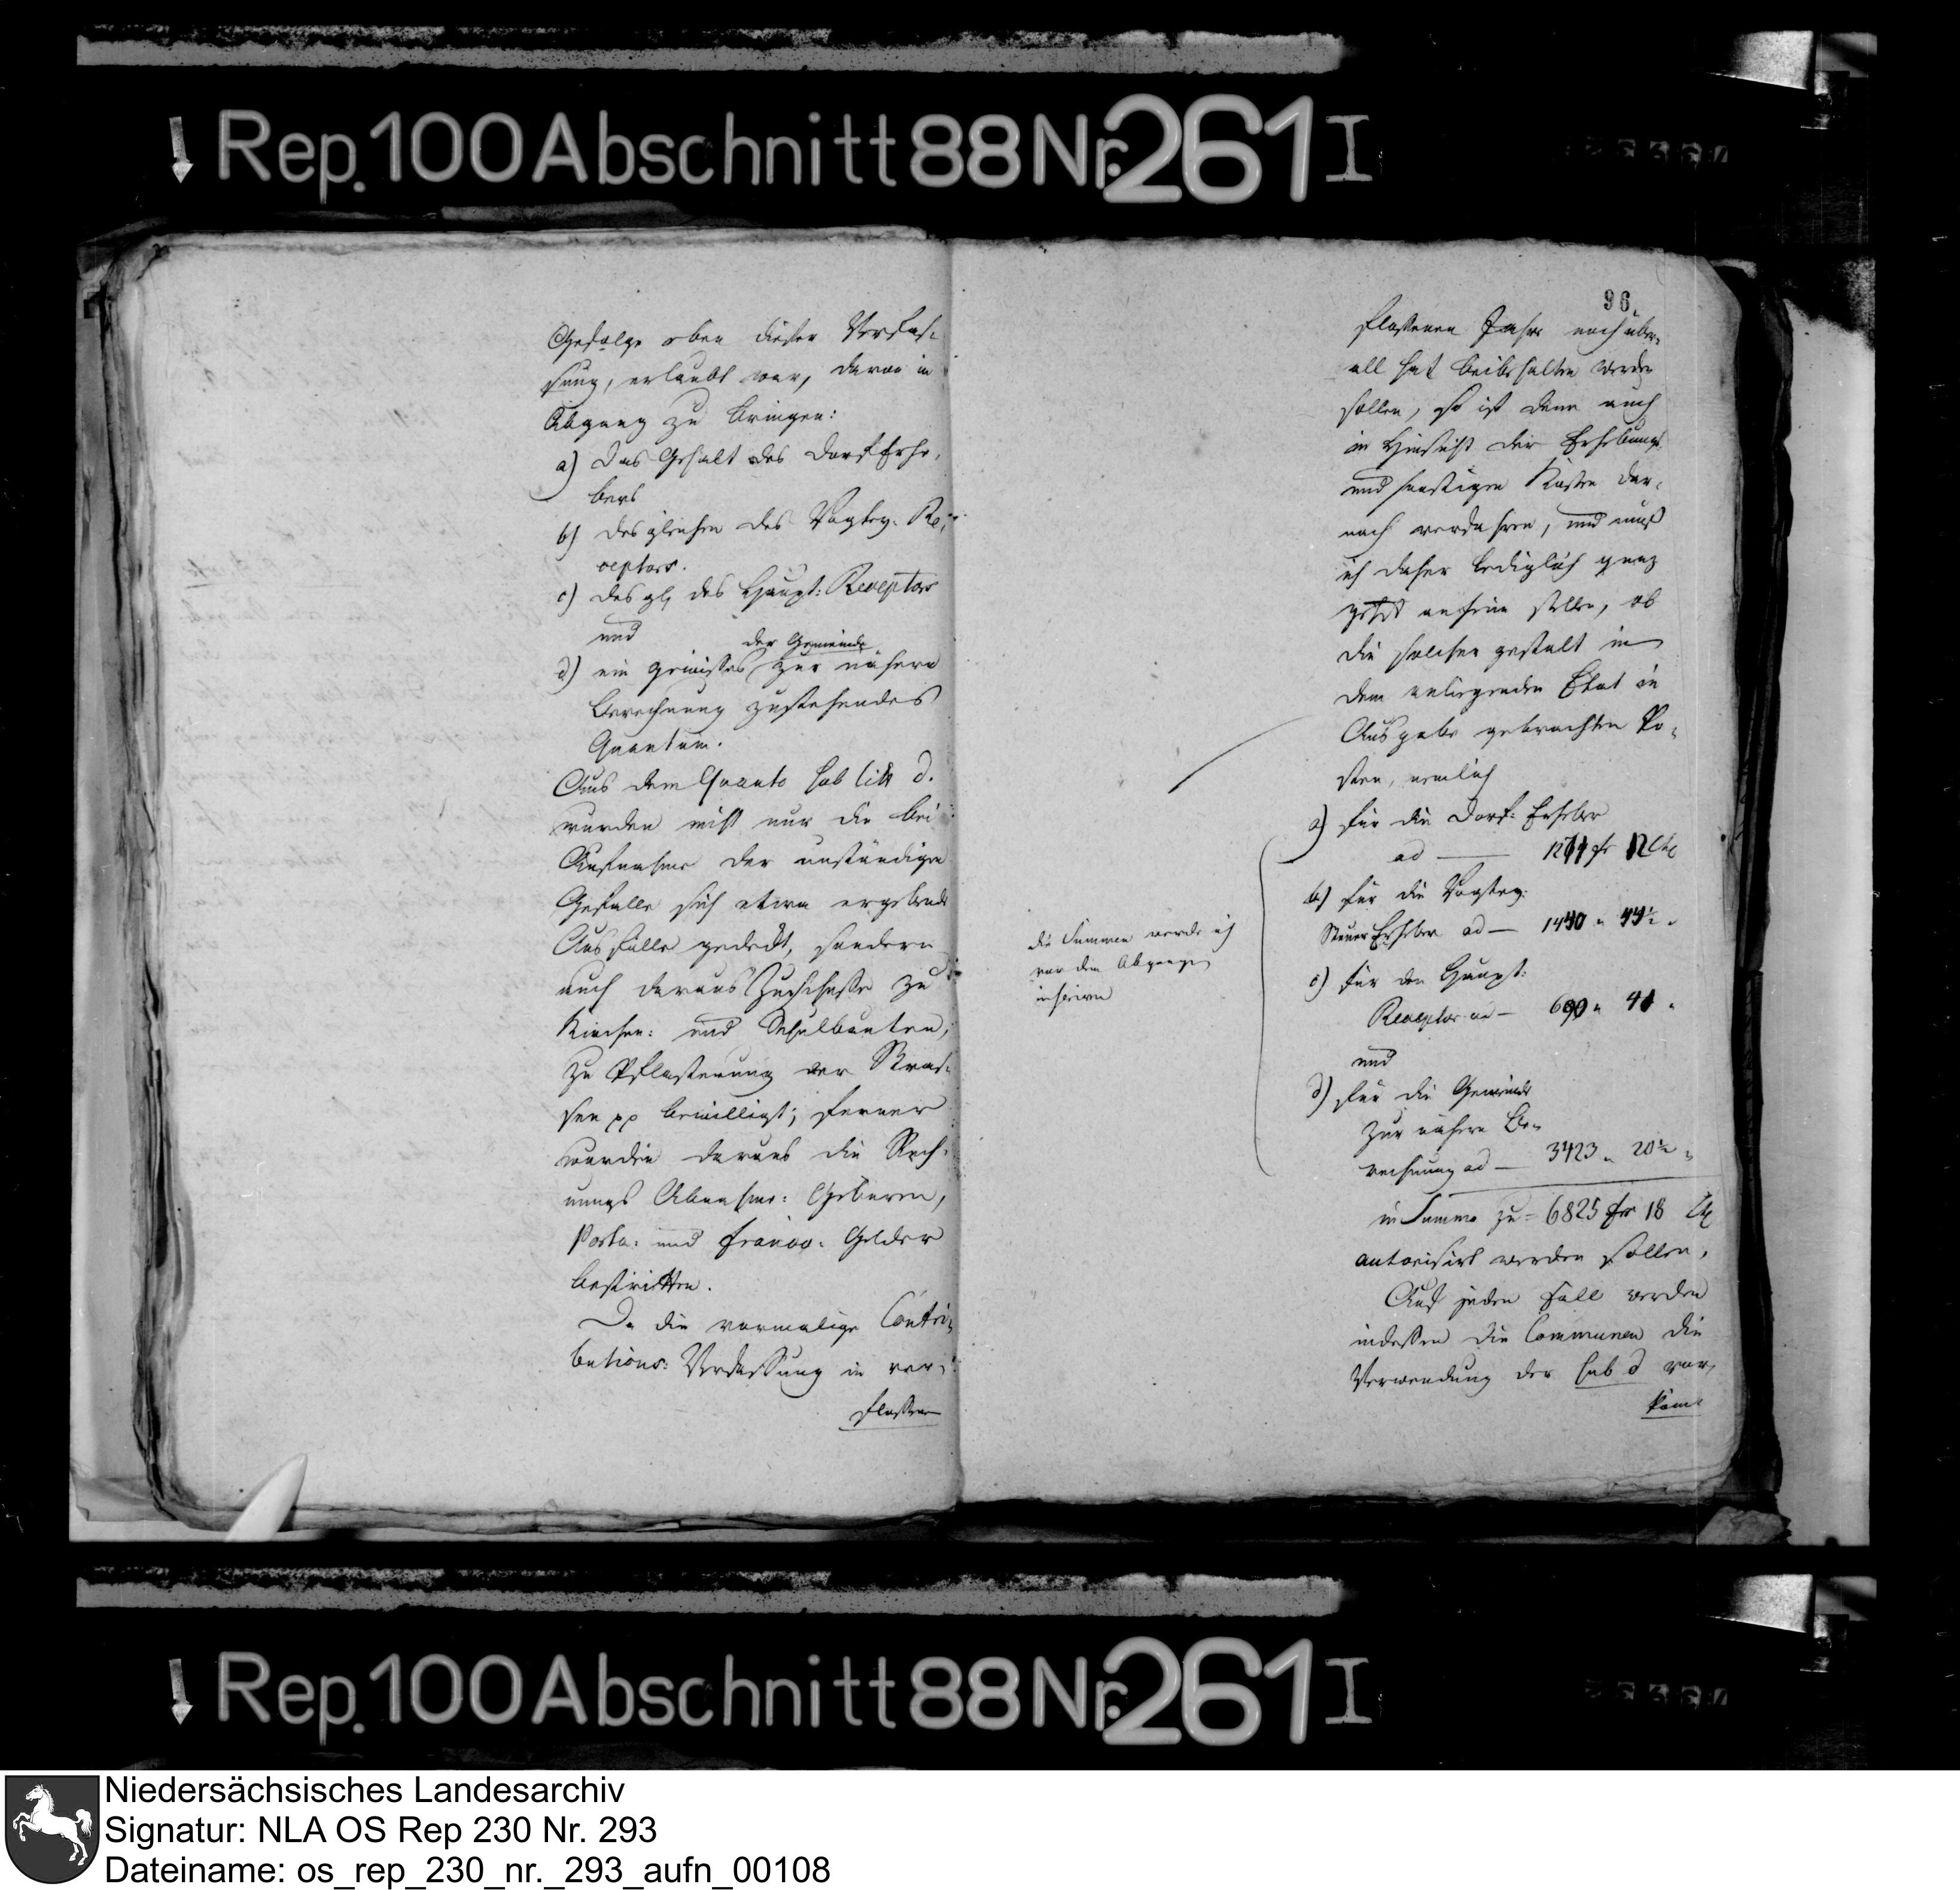 Rep. 100 Abschnitt 88 Nr. 261 I
Gefolge eben dieser Verfas-
sung, erlaubt war, davon in
Abgang zu bringen:
a) das Gehalt des Dorf Erhe-
bers
b) desgleichen des Vogtey-Re-
ceptors.
c) desgl. des Haupt-Receptors
und
der Gemeinde
d) ein gewisses zur nähern
Berechnung zustehendes
Quantum.
Aus dem Quanto sub litt d.
wurden nicht nur die bei
Aufnahme der unständigen
Gefälle sich etwa ergebende
Ausfälle gedeckt, sondern
auch daraus Zuschüsse zu
Kirchen- und Schulbauten,
zu Pflasterung der Stras-
sen pp bewilligt; ferner
wurden daraus die Rech-
nungs Abnahme-Gebüren,
Porto- und Franco-Gelder
bestritten.
Da die vormalige Contri-
butions-Verfassung in ver-
flossenen
96.
flossenen Jahre noch über-
all hat beibehalten werden
sollen, so ist denn auch
in Hinsicht der Erhebungs
und sonstigen Kosten dar-
nach verfahren, und muß
ich daher lediglich ganz
gehst anheim stellen, ob
die solcher gestalt in
dem anliegenden Etat in
Ausgabe gebrachten Po-
sten, nemlich
a) für die Dorf-Erheber
ad — fr
b) für die Vogtey-
Steuer Erheber ad —
c) für den Haupt-
Receptor ad —
und
d) für die Gemeinde
zur nähern Be-
rechnung ad — 3423 " 20½ "
in Summa zu = 6825 fr 18
autorisirt werden sollen.
Auf jeden Fall werden
indessen die Communen die
Verwendung der sub d vor-
kom-
die Summen werde ich
vor dem Abgange
inseriren
Rep. 100 Abschnitt 88 Nr. 261 I
Niedersächsisches Landesarchiv
Signatur: NLA OS Rep 230 Nr. 293
Dateiname: os_rep_230_nr._293_aufn_00108